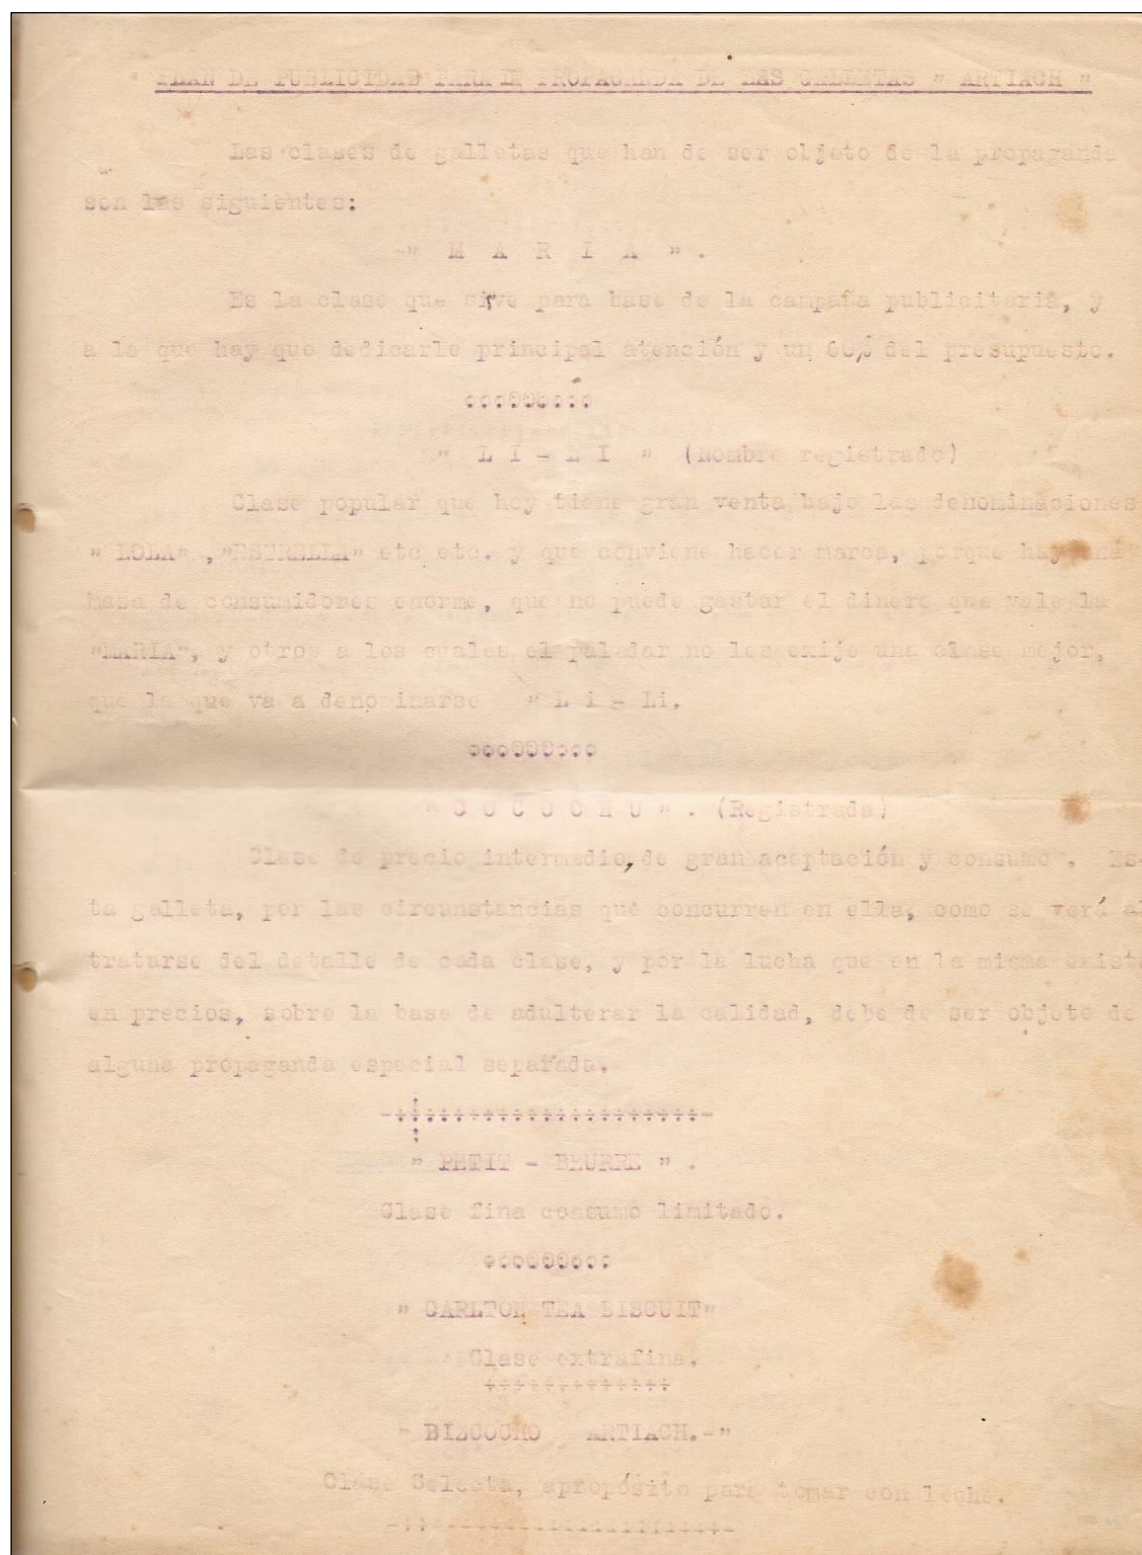 PLAN DE PUBLICIDAD PARA LA PROPAGANDA DE LAS GALLETAS " ARTIACH "
Las clases de galletas que han de ser objeto de la propaganda
son las siguientes:
-" M A R I A ".
Es la clase que sirve para base de la campaña publicitaria, y
a la que hay que dedicarle principal atención y un 60% del presupuesto.
" L I - L I " (Nombre registrado)
Clase popular que hoy tiene gran venta bajo las denominaciones
" LOLA" ,"ESTRELLA" etc etc. y que conviene hacer marca, porque hay una
masa de consumidores enorme, que no puede gastar el dinero que vale la
"MARIA", y otros a los cuales el paladar no les exije una clase mejor,
que la que va a denominarse " L i - Li.
" C O C O C H U " . (Registrada)
Clase de precio intermedio, de gran aceptación y consumo . Es-
ta galleta, por las circunstancias que concurren en ella, como se verá al
tratarse del detalle de cada clase, y por la lucha que en la misma existe
en precios, sobre la base de adulterar la calidad, debe de ser objeto de
alguna propaganda especial separada.
" PETIT - BEURRE " .
Clase fina consumo limitado.
" CARLTON TEA BISCUIT"
Clase extrafina.
" BIZCOCHO ARTIACH.-"
Clase Selecta, apropósito para tomar con leche.